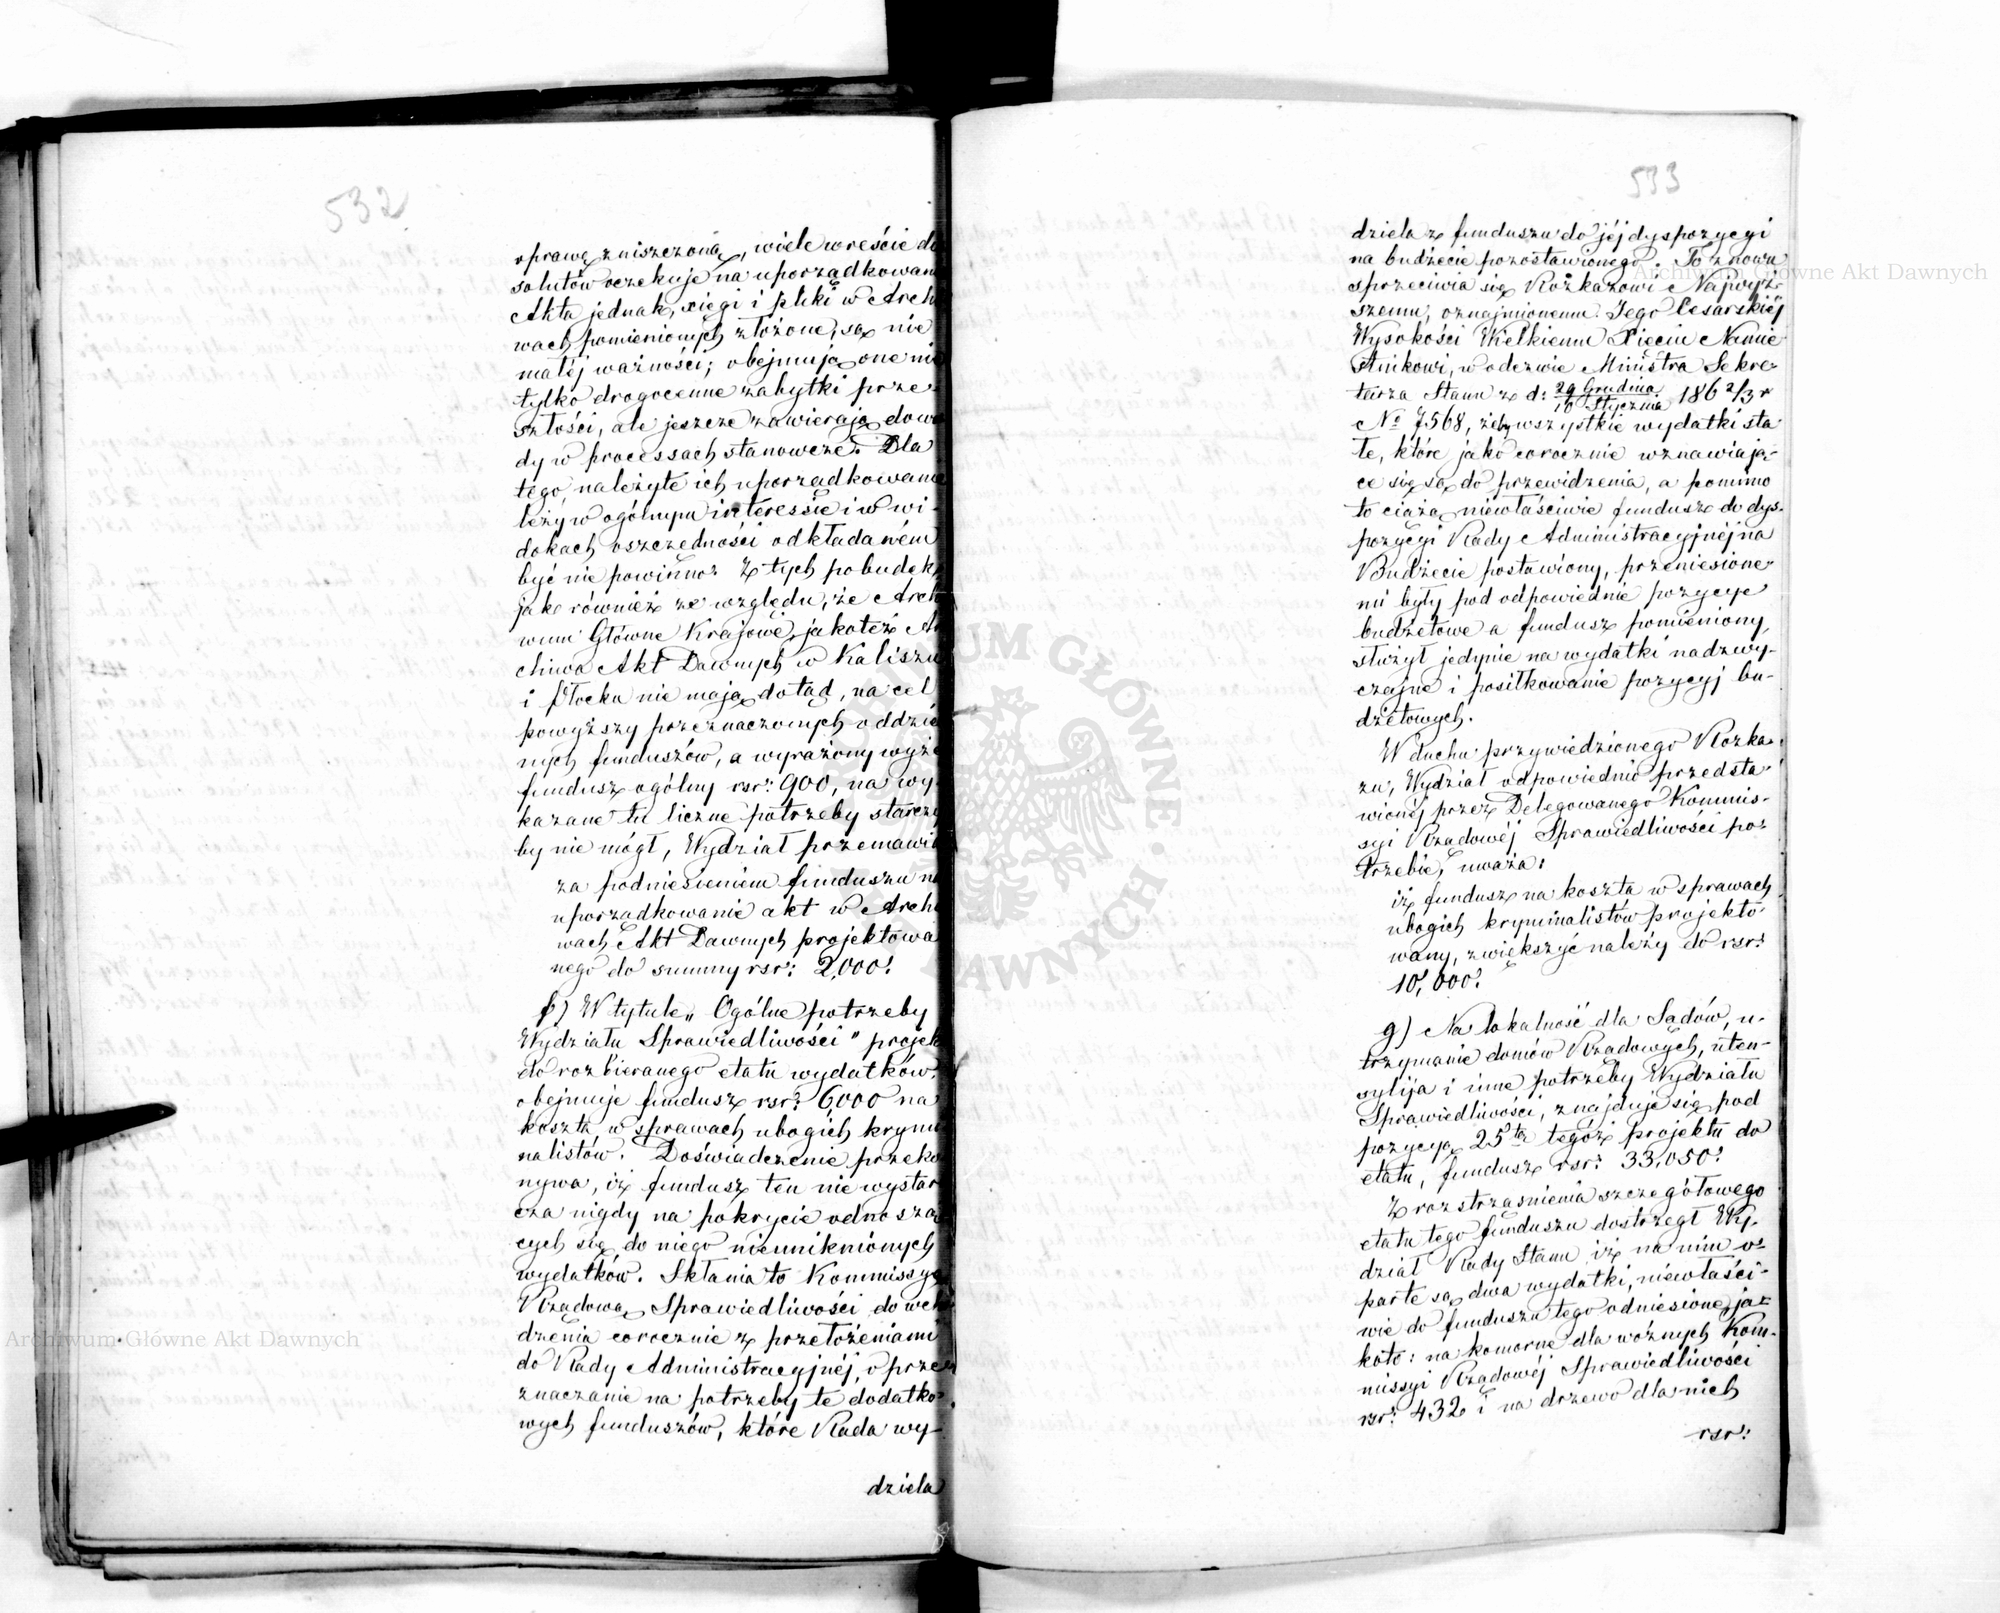 532
oprawę zniszczoną, wiele wreście de
solutów oczekuje na uporządkowani
Akta jednak, xięgi i pliki w Arch
wach pomienionych złożone, są nie
małej ważności; obejmują one nie
tylko drogocenne zabytki prze-
szłości, ale jeszcze zawierają dowo
dy w processach stanowcze. Dla
tego, należyte ich uporządkowani
leży w ogólnym interessie i w wi-
dokach oszczędności odkładaném
być nie powinno. Z tych pobudek,
jako również ze względu, że Arch
wum Główne Krajowe, jakoteż Ar
chiwa Akt Dawnych w Kaliszu
i Płocku nie mają dotąd, na cel
powyższy przeznaczonych oddziel
nych funduszów, a wyrażony wyże
fundusz ogólny rsr: 900, na wy
kazane tu liczne potrzeby starczy
by nie mógł, Wydział przemawia
za podniesieniem funduszu na
uporządkowanie akt w Archi
wach Akt Dawnych projektowa
nego do summy rsr: 2,000.
f) W tytule „Ogólne potrzeby
Wydziału Sprawiedliwości" projek
do rozbieranego etatu wydatków,
obejmuje fundusz rsr: 6,000 na
koszta w sprawach ubogich krymi
nalistów. Doświadczenie przeko
nywa, iż fundusz ten nie wystar
cza nigdy na pokrycie odnoszą
cych się do niego nieuniknionych
wydatków. Skłania to Kommissyą
Rządową Sprawiedliwości do wcho
dzenia corocznie z przełożeniami
do Rady Administracyjnéj, o prze
znaczanie na potrzeby te dodatko-
wych funduszów, które Rada wy-
dziela
533
dziela z funduszu do jéj dyspozycyi
na budżecie pozostawionego. To znowu
sprzeciwia się Rozkazowi Najwyż-
szemu, oznajmionemu Jego Cesarskiéj
Wysokości Wielkiemu Xięciu Namie-
stnikowi, w odezwie Ministra Sekre-
tarza Stanu z d: 29 Grudnia / 10 Stycznia 1862/3 r
No 7568, żeby wszystkie wydatki sta
łe, które jako corocznie wznawiają-
ce się są do przewidzenia, a pomimo
to ciążą niewłaściwie fundusz do dys-
pozycyi Rady Administracyjnéj na
Budżecie postawiony, przeniesione-
mi były pod odpowiednie pozycye
budżetowe a fundusz pomieniony,
służył jedynie na wydatki nadzwy-
czajne i posiłkowanie pozycyj bu-
dżetowych.
W duchu przywiedzionego Rozka-
zu, Wydział odpowiednio przedsta
wionéj przez Delegowanego Kommis-
syi Rządowéj Sprawiedliwości po-
trzebie, uważa:
iż fundusz na koszta w sprawach
ubogich kryminalistów projekto-
wany, zwiększyć należy do rsr:
10,000.
g) Na lokalność dla Sądów, u-
trzymanie domów Rządowych, uten-
sylija i inne potrzeby Wydziału
Sprawiedliwości, znajduje się pod
pozycyą 25tą tegóż projektu do
etatu, fundusz rsr: 33,050.
Z rozstrząśnienia szczegółowego
etatu tego funduszu dostrzegł Wy-
dział Rady Stanu iż na nim o-
parte są dwa wydatki, niewłaści-
wie do funduszu tego odniesione, ja-
koto: na komorne dla woźnych Kom-
missyi Rządowéj Sprawiedliwości
rsr: 432 i na drzewo dla nich
rsr:
Archiwum Główne Akt Dawnych
Archiwum Główne Akt Dawnych
ARCHIWUM GŁÓWNE AKT DAWNYCH